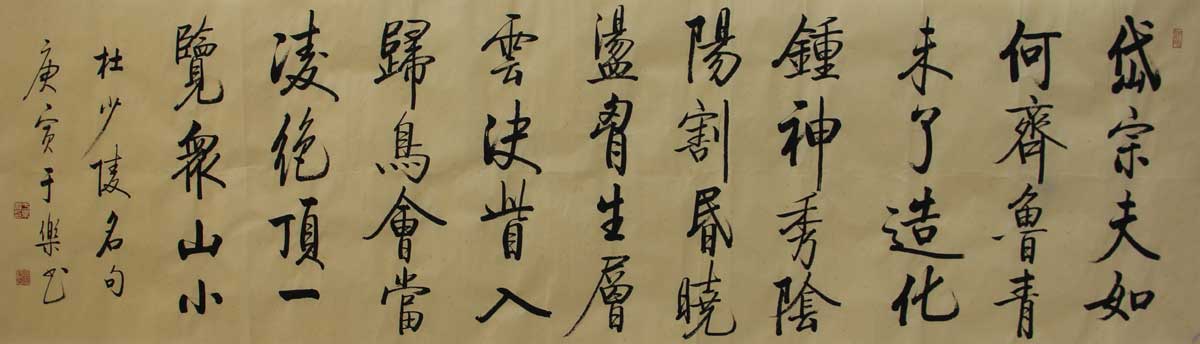 岱宗夫如
何齊魯青
未了造化
鍾神秀陰
陽割昬曉
盪胷生層
雲决眥入
歸鳥會當
凌絶頂一
覽衆山小
杜少陵名句
庚寅于樂书